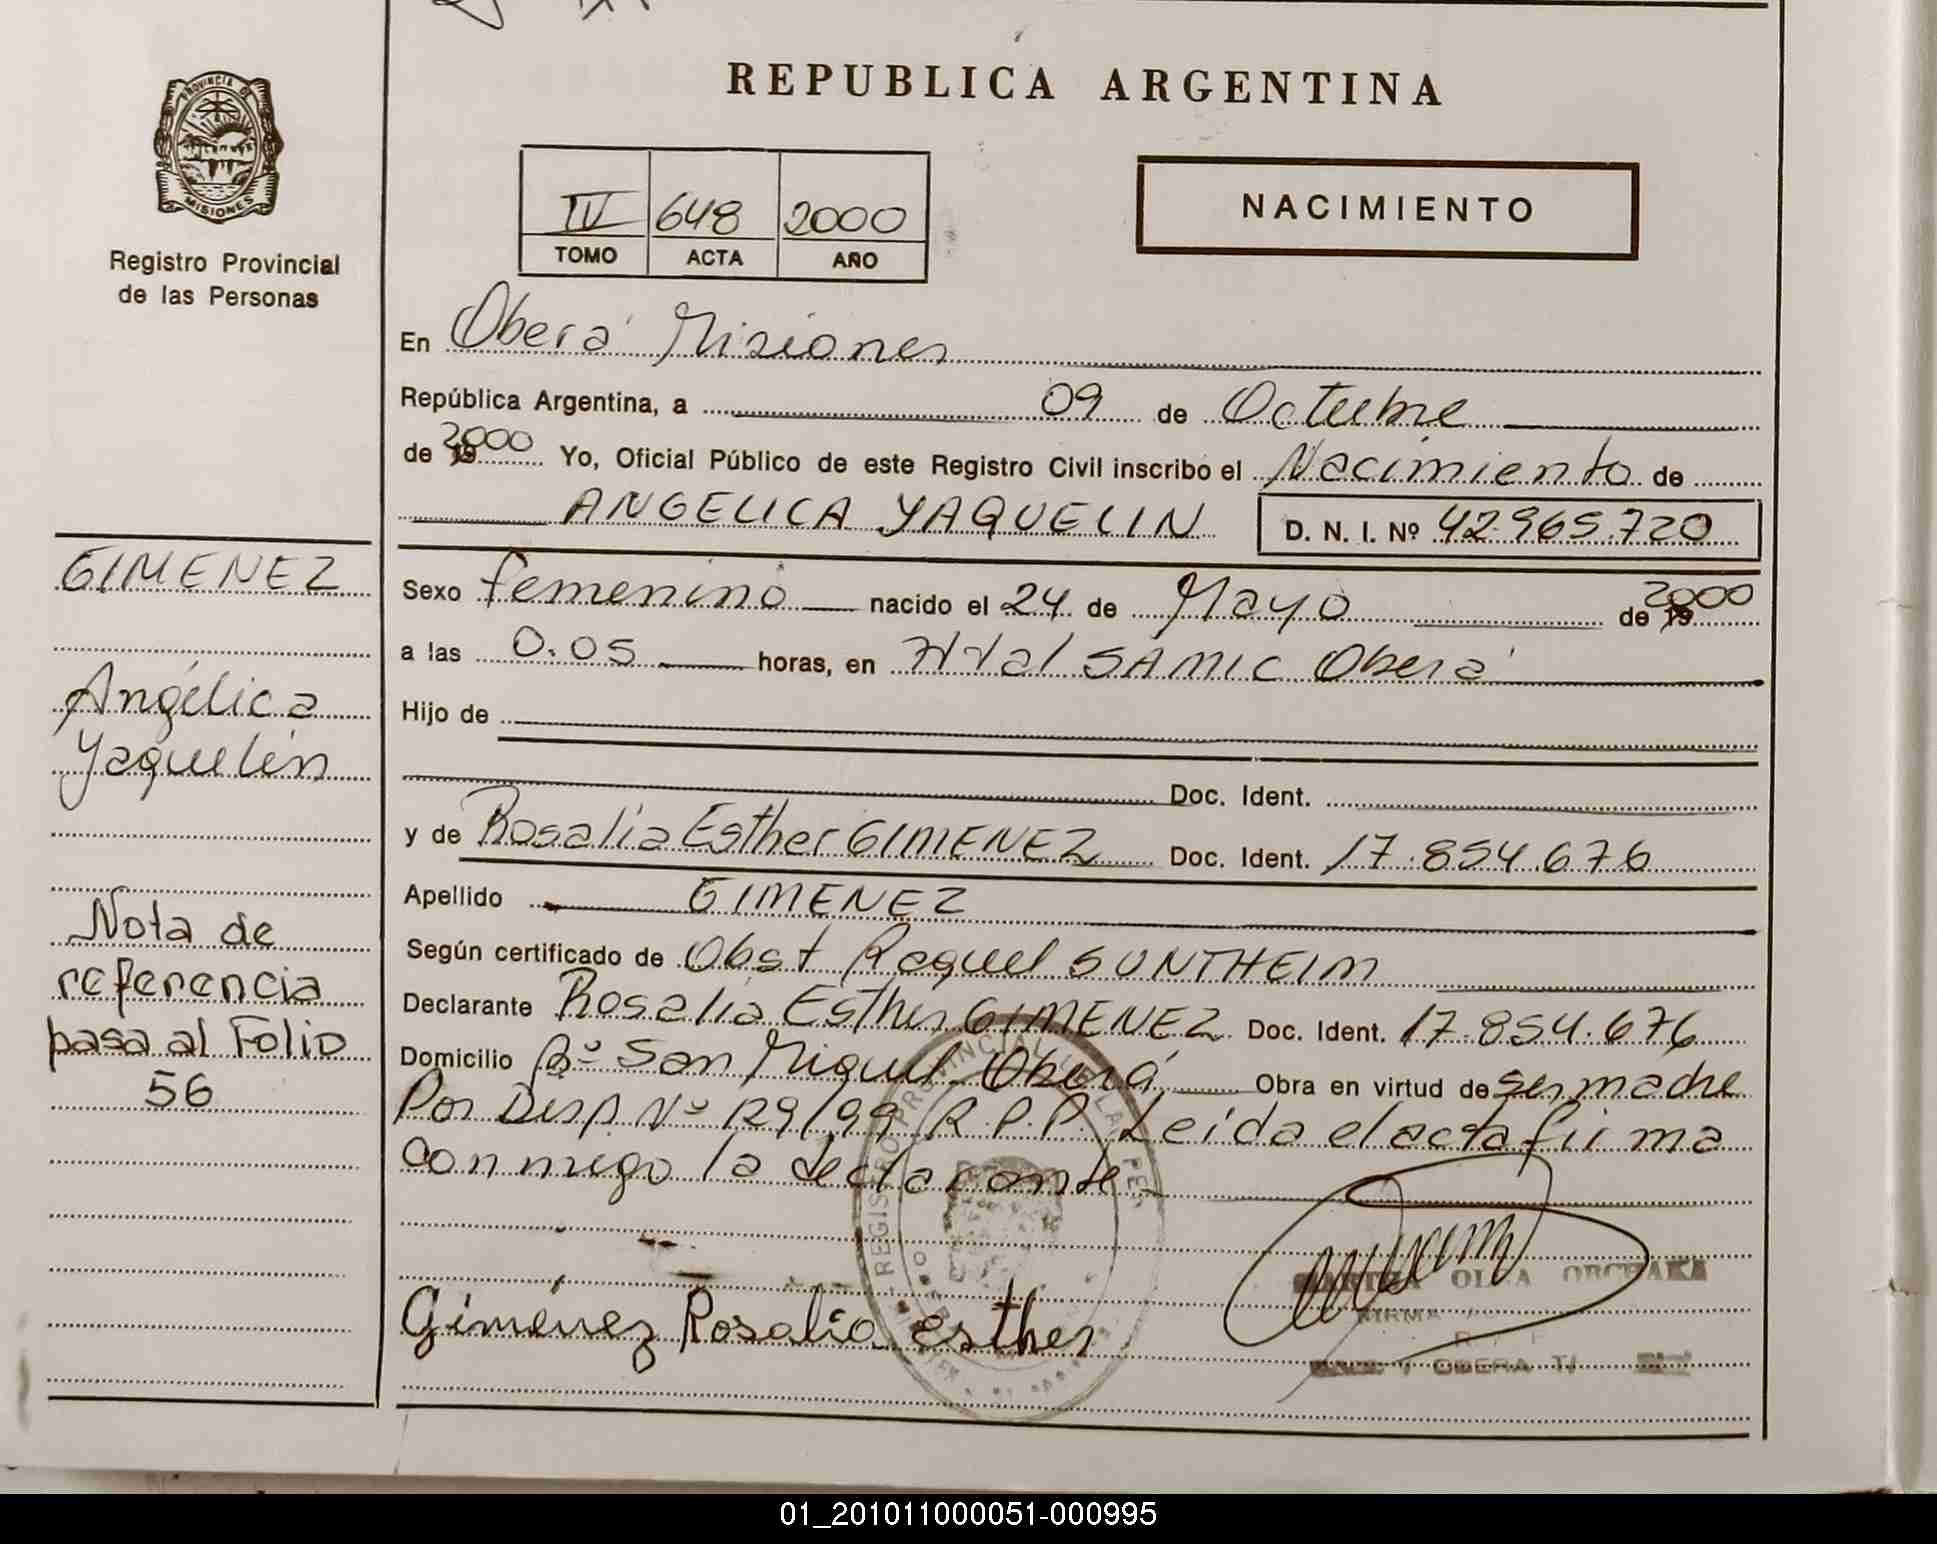 PROVINCIA DE
MISIONES
Registro Provincial
de las Personas
GIMENEZ
Angélica
Yaquelin
Nota de
referencia
pasa al Folio
56
REPUBLICA ARGENTINA
IV 648 2000
TOMO ACTA AÑO
NACIMIENTO
En Oberá Misiones
República Argentina, a 09 de Octubre
de 2000 Yo, Oficial Público de este Registro Civil inscribo el Nacimiento de
ANGELICA YAQUELIN D. N. I. Nº 42.965.720
Sexo femenino nacido el 24 de Mayo de 2000
a las 0.05 horas, en Htal SAMIC Oberá
Hijo de
Doc. Ident.
y de Rosalia Esther GIMENEZ Doc. Ident. 17.854.676
Apellido GIMENEZ
Según certificado de Obst Raquel SUNTHEIM
Declarante Rosalia Esther GIMENEZ Doc. Ident. 17.854.676
Domicilio Bº San Miguel Oberá Obra en virtud de ser madre
Por Disp. Nº 129/99 R.P.P. Leída el acta firma
conmigo la declarante
REGISTRO PROVINCIAL DE LAS PER
Giménez Rosalia Esther
OLGA
OBERA
01_201011000051-000995